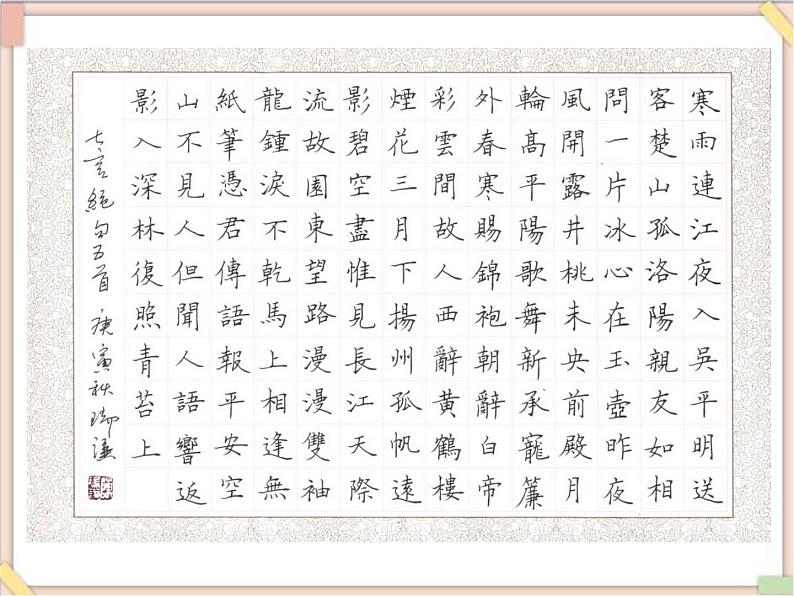 寒雨連江夜入吳平明送
客楚山孤洛陽親友如相
問一片冰心在玉壺昨夜
風開露井桃未央前殿月
輪髙平陽歌舞新承寵簾
外春寒賜錦袍朝辭白帝
彩雲間故人西辭黃鶴樓
煙花三月下揚州孤帆遠
影碧空盡惟見長江天際
流故園東望路漫漫雙袖
龍鍾淚不乾馬上相逢無
紙筆憑君傳語報平安空
山不見人但聞人語響返
影入深林復照青苔上
七言絕句五首 庚寅秋